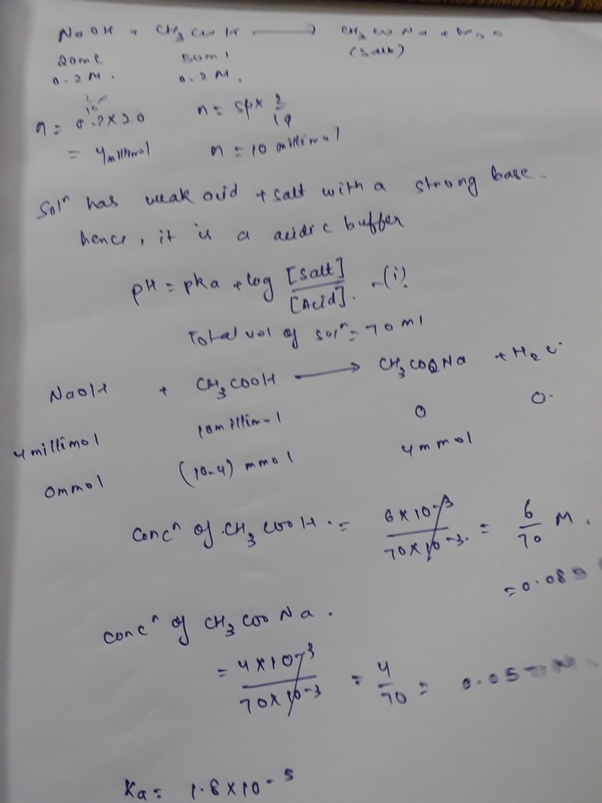 NaOH + CH3COOH ⟶ CH3COONa + H2O
20ml 50ml (Salt)
0.2M. 0.2M.
n = 0.2×20 n = 50× 2/10
= 4millimol n = 10 millimol
Solⁿ has weak acid + salt with a strong base.
hence, it is a acidic buffer
pH = pka + log [Salt]/[Acid]. -(i)
Total vol of solⁿ = 70 ml
NaOH + CH3COOH ⟶ CH3COONa + H2O
4 millimol 10millimol 0 0.
0mmol (10-4) mmol 4mmol
Concⁿ of CH3COOH. = 6×10-3/70×10-3. = 6/70 M.
=0.085
concⁿ of CH3COONa.
= 4×10-3/70×10-3 = 4/70 = 0.057M
Ka = 1.8×10-5